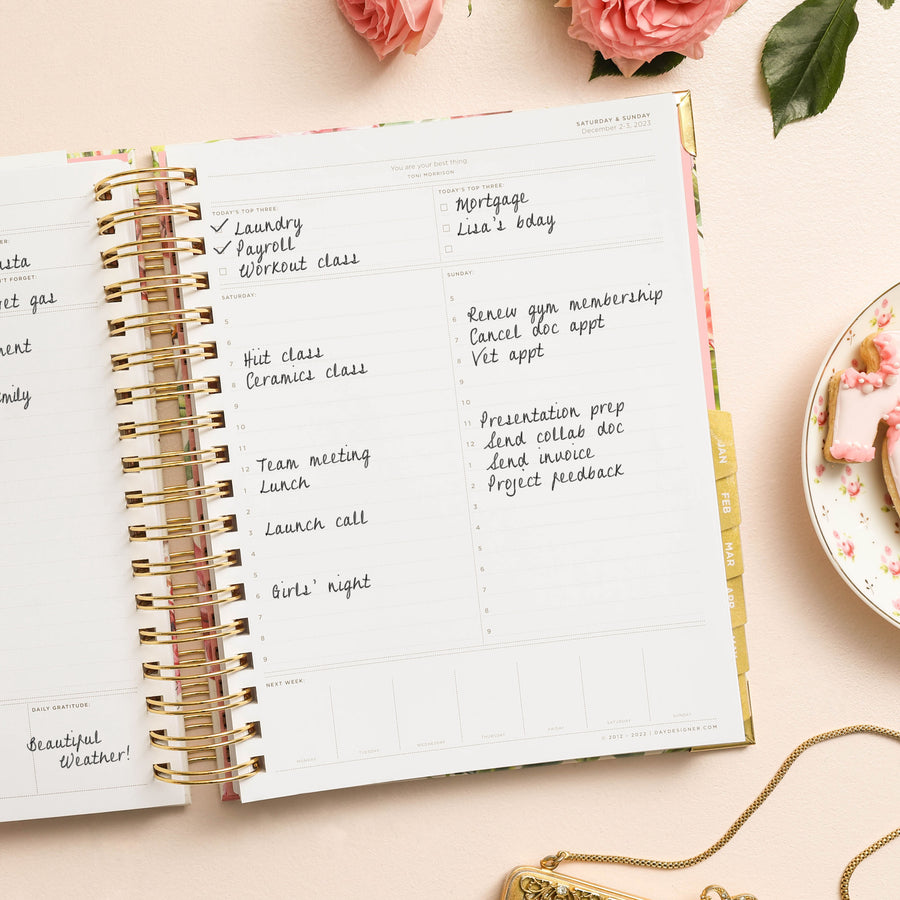 SATURDAY & SUNDAY
December 2-3, 2023
You are your best thing.
TONI MORRISON
TODAY'S TOP THREE:
Laundry
Payroll
Workout class
TODAY'S TOP THREE:
Mortgage
Lisa's bday
SATURDAY:
5
6
7 Hiit class
8 Ceramics class
9
10
11
12 Team meeting
1 Lunch
2
3 Launch call
4
5
6 Girls' night
7
8
9
SUNDAY:
5
6 Renew gym membership
7 Cancel doc appt
8 Vet appt
9
10
11 Presentation prep
12 Send collab doc
1 Send invoice
2 Project feedback
3
4
5
6
7
8
9
NEXT WEEK:
MONDAY
TUESDAY
WEDNESDAY
THURSDAY
FRIDAY
SATURDAY
SUNDAY
© 2012 - 2022 | DAYDESIGNER.COM
JAN
FEB
MAR
APR
get gas
DAILY GRATITUDE:
Beautiful
Weather!